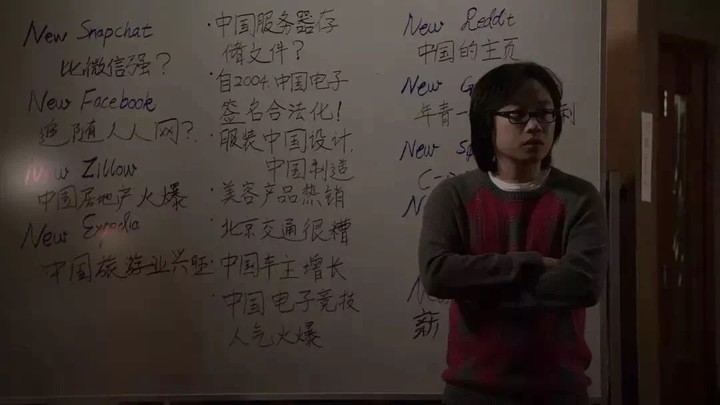 New Snapchat
比微信强？
New Facebook
追随人人网？
New Zillow
中国房地产火爆
New Expedia
中国旅游业兴旺
·中国服务器存
储文件？
·自2004.中国电子
签名合法化！
·服装中国设计.
中国制造
·美容产品热销
·北京交通很糟
·中国车主增长
·中国电子竞技
人气火爆
New Reddit
中国的主页
New
年青一
New
C-
新